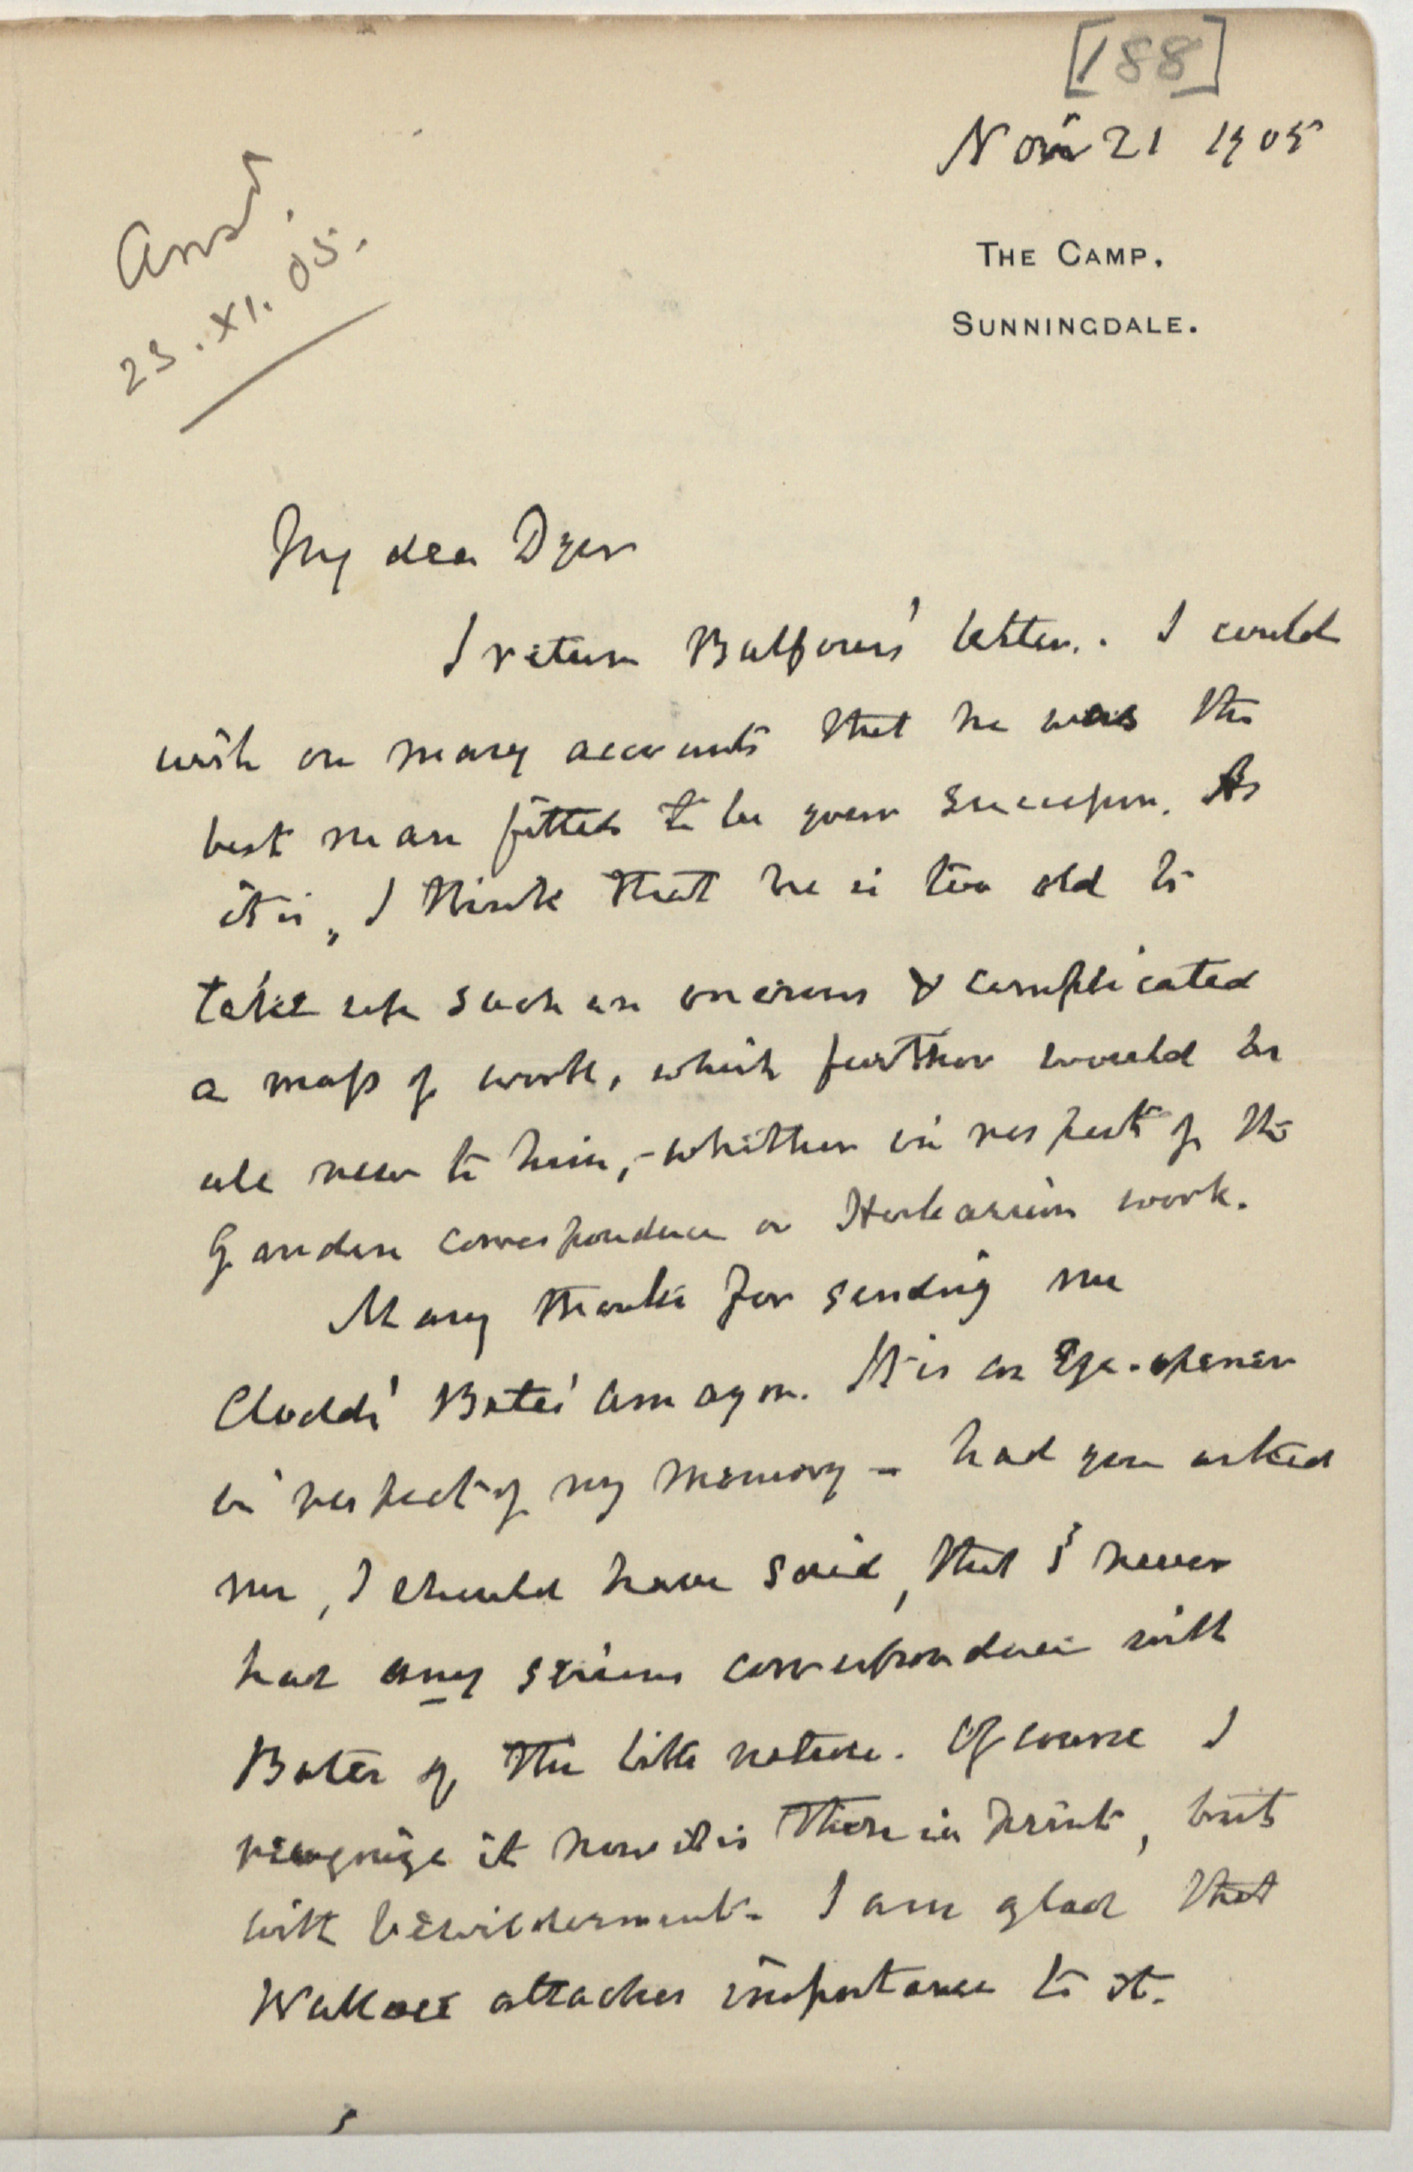 [188]
Nov 21 1905
Answd.
23.XI.05.
THE CAMP.
SUNNINGDALE.
My dear Dyer
I return Balfours' letter. I could
wish on many accounts that he was the
best man fitted to be your successor. As
it is, I think that he is too old to
take up such an onerous & complicated
a mass of work, which further would be
all new to him, - whether in respect of the
Garden correspondence or Herbarium work.
Many thanks for sending me
Clodds' Bates' Amazon. It is an Eye-opener
in respect of my memory – had you asked
me, I should have said, that I never
had any serious correspondence with
Bates of this like nature. Of course I
recognize it now it is there in print, but
with bewilderment. I am glad that
Wallace attaches importance to it.